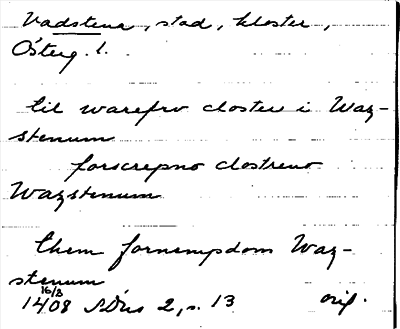 Vadstena, stad, kloster,
Österg. l.
til warefrv closter i Waz-
stenum
forscrepno clostreno
Wazstenum
them fornempdom Waz-
stenum
16/3
1408 SDns 2, s. 13 orig.